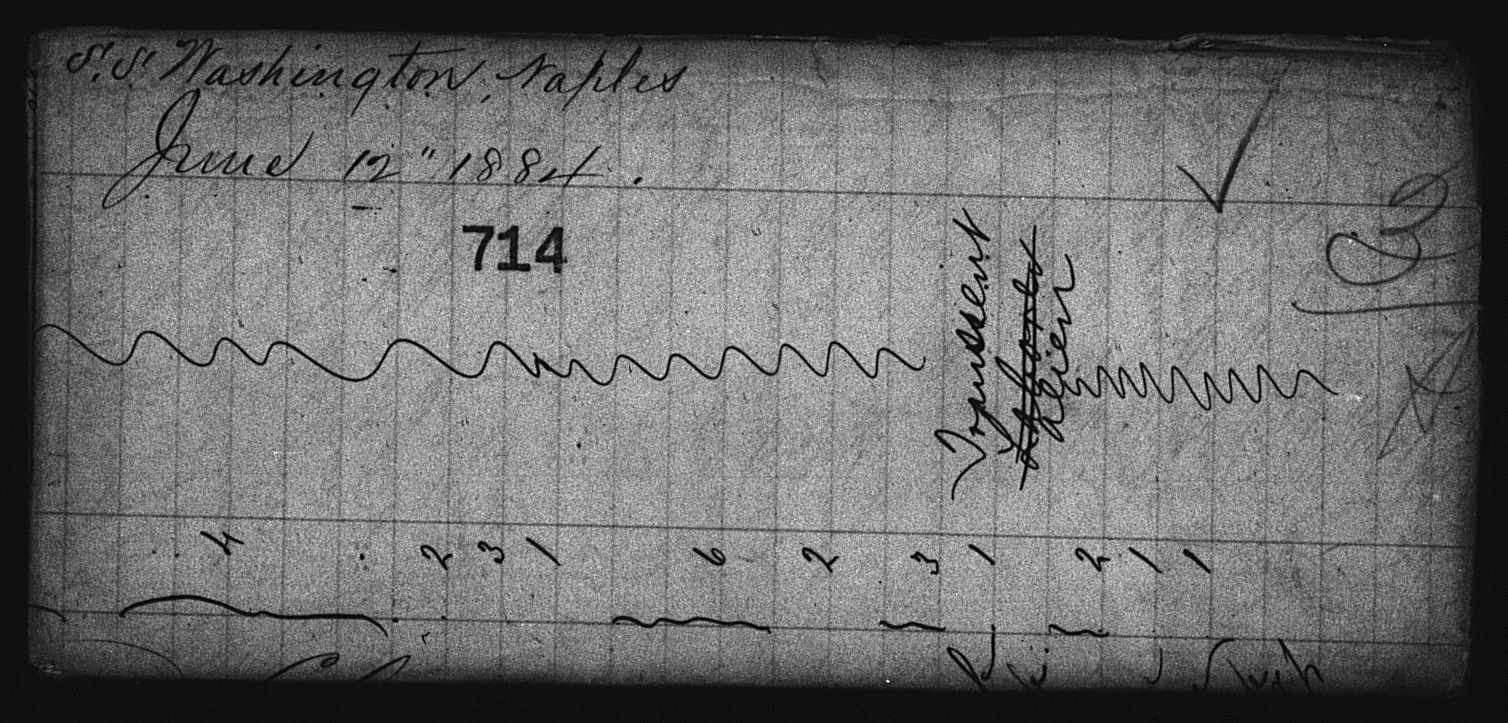 S.S. Washington, Naples
June 12" 1884.
714
Transient
Alien
4 2 3 1 6 2 3 1 2 1 1